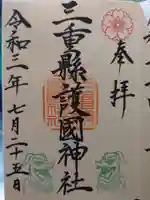 奉拝
三重縣護國神社
令和二年七月二十五日